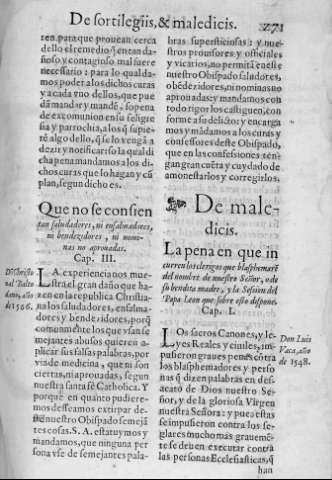 De sortilegijs, & maledicis.
271
ren, para que prouean cerca
dello el remedio q̃ en tan da-
ñoso y contagioso mal fuere
necessario: para lo qual da-
mos poder a los dichos curas
y a cada vno dellos, que pue
dã mandar y mandẽ, so pena
de excomunion en su feligre
sia y parrochia, a los q̃ supie-
rẽ algo dello, q̃ se lo vengã a
dezir y notificar: so la qual di
cha pena mandamos a los di-
chos curas que lo hagan y cũ
plan, segun dicho es.
Que no se consien
tan saludadores, ni ensalmadores,
ni bendezidores, ni nomi-
nas no aprouadas.
Cap. III.
LA experiencia nos mue-
stra el gran daño que ha-
zen en la republica Christia-
na los saludadores, ensalma-
dores y bendezidores, porq̃
comunmente los que vsan se
mejantes abusos quieren a-
plicar sus falsas palabras, por
via de medicina, que ni son
ciertas, ni aprouadas, segun
nuestra santa fè Catholica. Y
porque en quanto pudiere-
mos desseamos extirpar de
nuestro Obispado semejã
tes cosas. S. A. estatuymos y
mandamos, que ninguna per
sona vse de semejantes pala-
bras supersticiosas: y nue-
stros prouisores y officiales
y vicarios, no permitã en este
nuestro Obispado saludores,
o bẽdezidores, ni nominas no
aprouadas: y mandamos con
todo rigor los castiguen, con
forme a su delicto: y encarga
mos y mãdamos a los curas y
confessores deste Obispado,
que en las confessiones ten-
gan gran cuẽta y cuydado de
amonestarlos y corregirlos.
De male-
dicis.
La pena en que in
curren los clerigos que blasphemarẽ
del nombre de nuestro Señor, o de
su bendita madre, y la Session del
Papa Leon que sobre esto dispone.
Cap. I.
Don Luis
Vaca, año
de 1548.
LOs sacros Canones, y le-
yes Reales y ciuiles, im-
pusieron graues penas contra
los blasphemadores y perso-
nas q̃ dizen palabras en desa-
cato de Dios nuestro Se-
ñor, y de la gloriosa Virgen
nuestra Señora: y pues estas
se impusieron contra los se-
glares, mucho mas grauemẽ-
te se deuen executar contra
las personas Ecclesiasticas, q̃
han